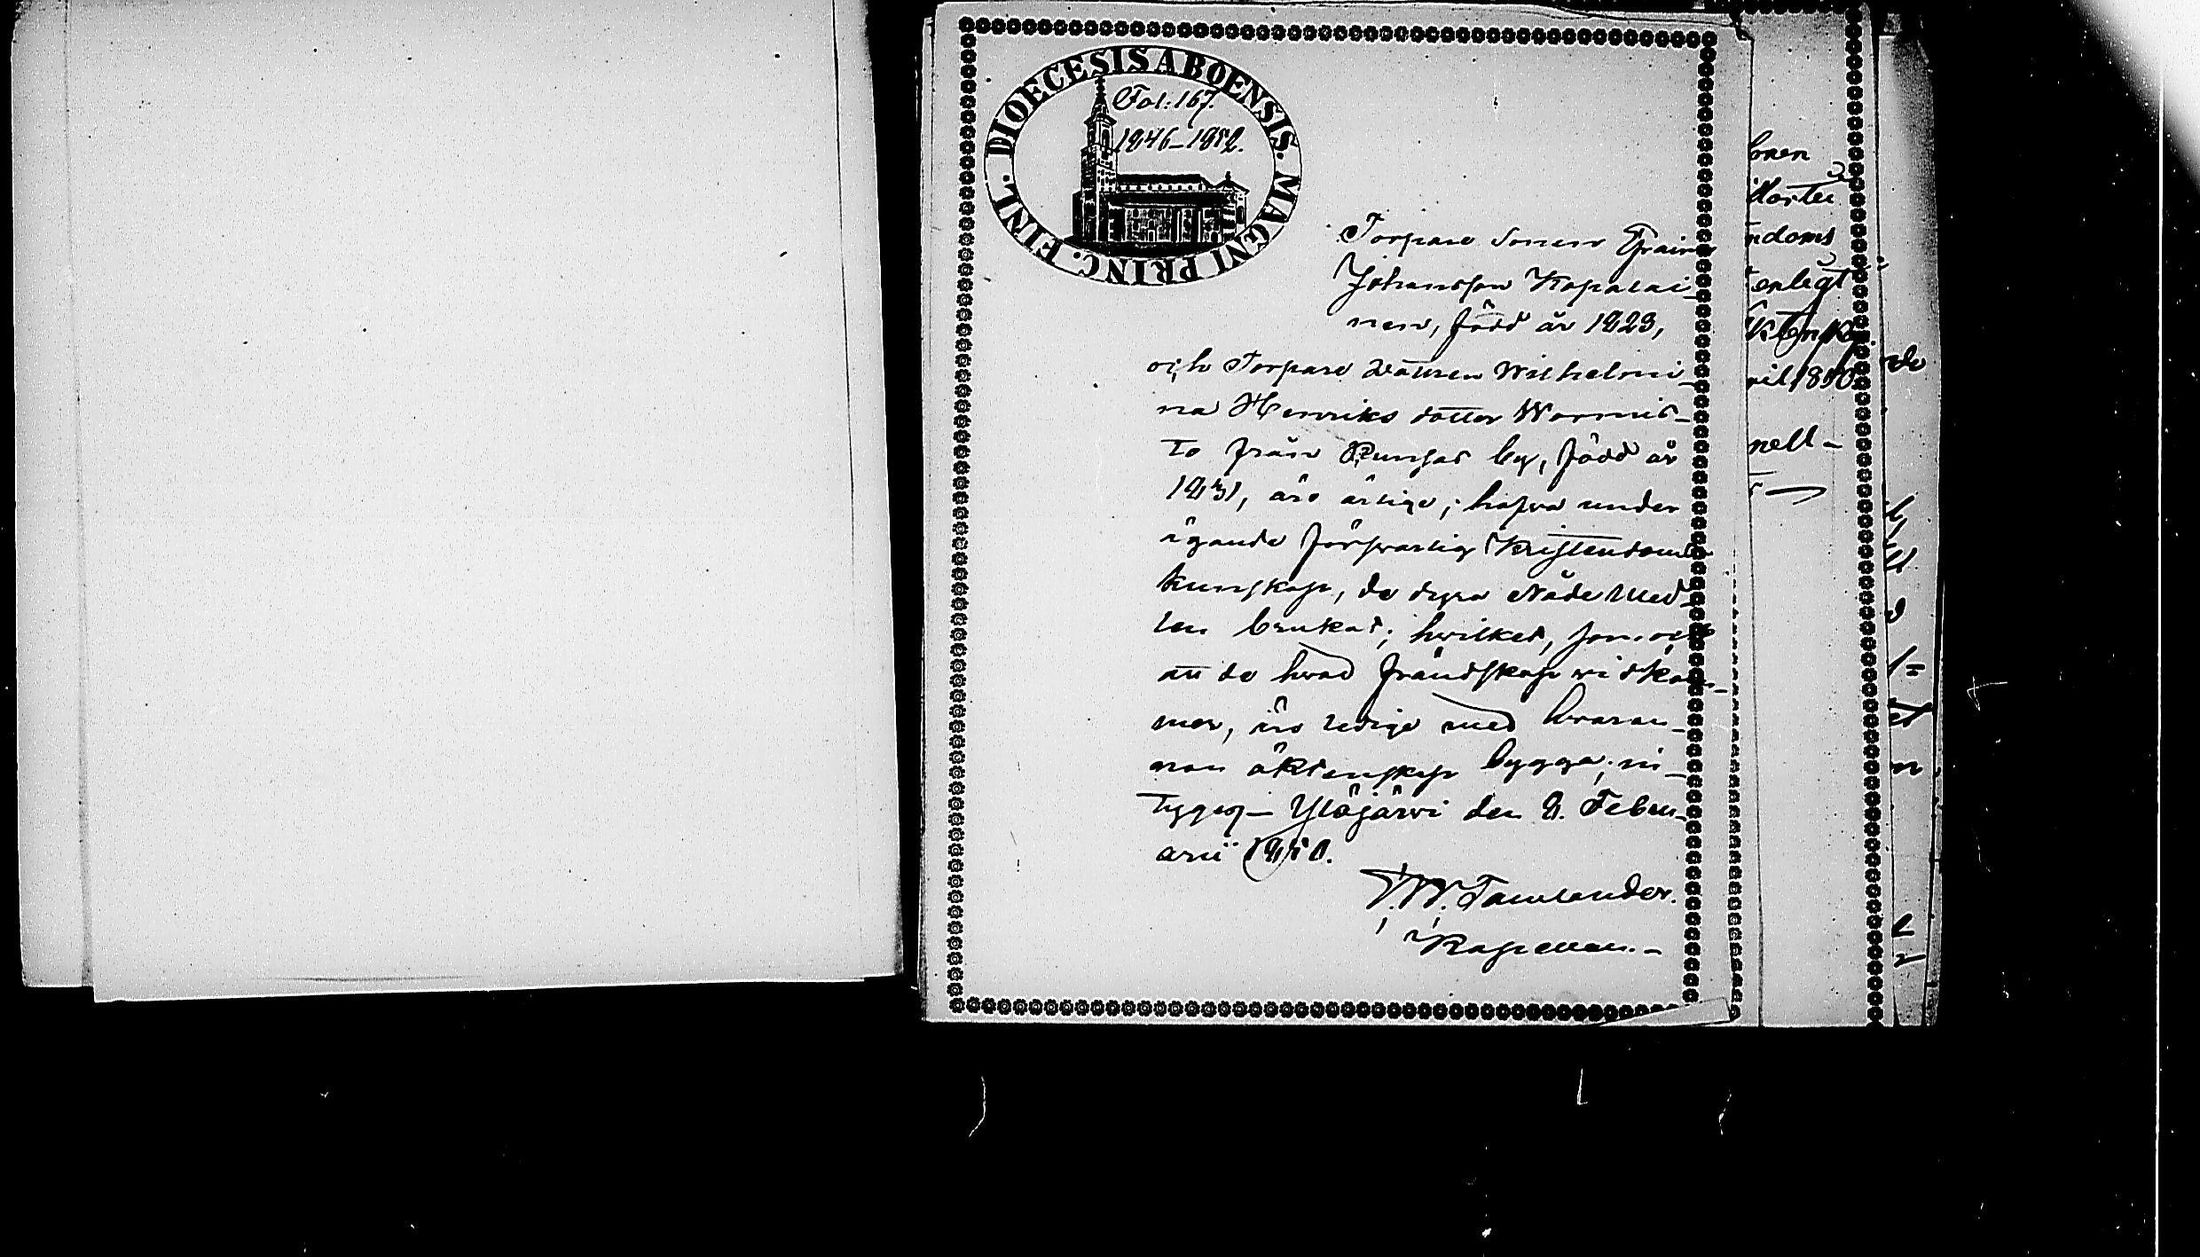 DIOECESIS ABOENSIS. MAGNI PRINC. FINL.
Fol: 167.
1846–1852.
Torpare Sonen
Johansson Kopalai-
nen, född år 1823,
och Torpare dottren Wilhelmi-
na Henriks dotter Wormis-
to från by, född år
1831, äro ärlige; hafva under
ägande försvarlig Kristendoms
kunskap, de dyra Nåde Med-
len brukat; hvilket, som och
att de hvad frändskap vidkom-
mer, äro ledige med hvaran-
nan äktenskap bygga; in-
tygas — Ylöjärvi den 8. Febru-
arii 1850.
Kapellan. –
onen
ndoms
enligt
ril 1850
nell –
de